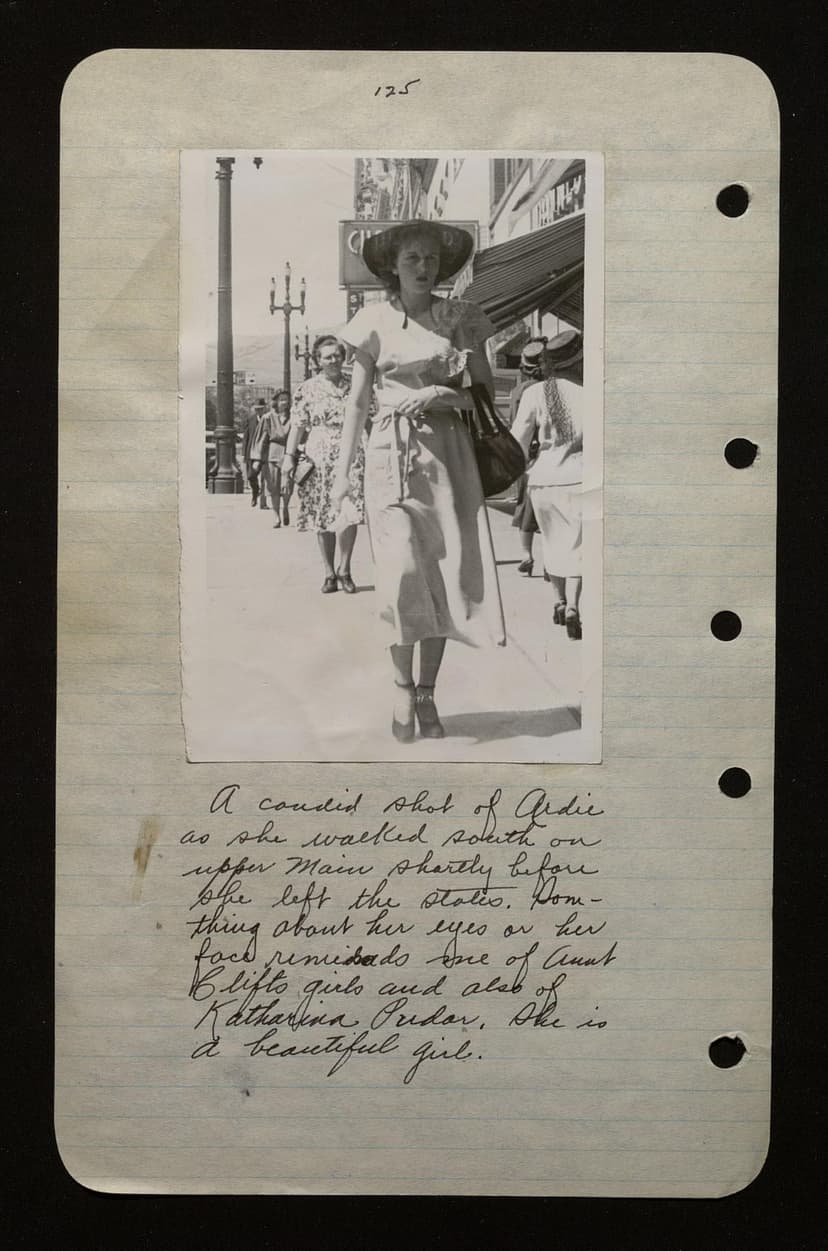 125
A candid shot of Ardie
as she walked south on
upper Main shortly before
she left the states. Som-
thing about her eyes or her
face reminds one of Aunt
Clifts girls and also of
Katharina Pudor. She is
a beautiful girl.